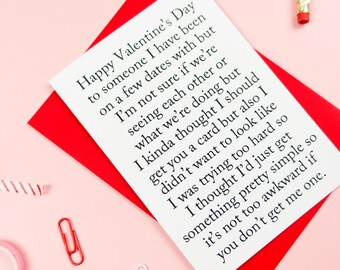 Happy Valentine's Day
to someone I have been
on a few dates with but
I'm not sure if we're
seeing each other or
what we're doing but
I kinda thought I should
get you a card but also I
didn't want to look like
I was trying too hard so
I thought I'd just get
something pretty simple so
it's not too awkward if
you don't get me one.